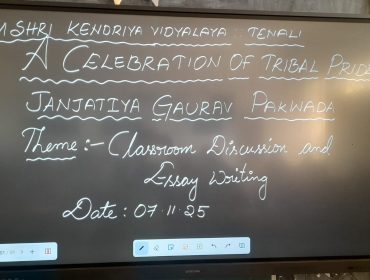 M SHRI KENDRIYA VIDYALAYA :: TENALI
A CELEBRATION OF TRIBAL PRIDE
JANJATIYA GAURAV PAKWADA
Theme:- Classroom Discussion and
Essay Writing
Date: 07.11.25